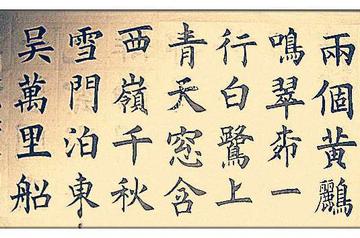 兩個黃鸝
鳴翠柳一
行白鷺上
青天窓含
西嶺千秋
雪門泊東
吳萬里船